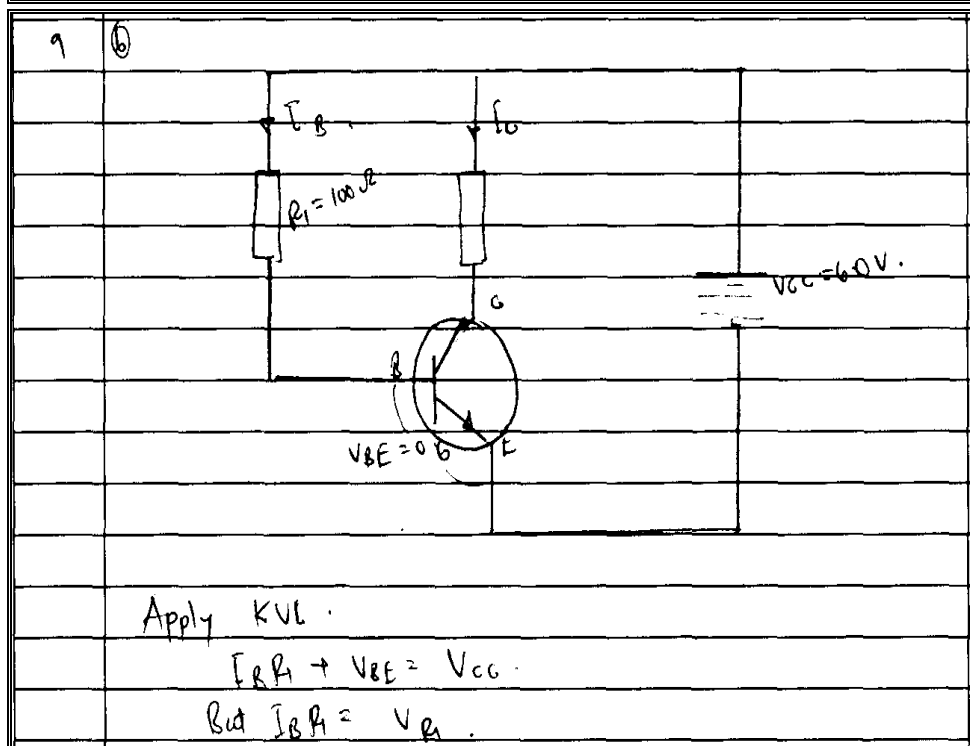 9 (b)
I_B
I_C
R₁ = 100 Ω
C
VCC = 6.0 V.
B
VBE = 0.6
E
Apply KVL.
I_B R₁ + VBE = VCC.
But I_B R₁ = V_R₁.